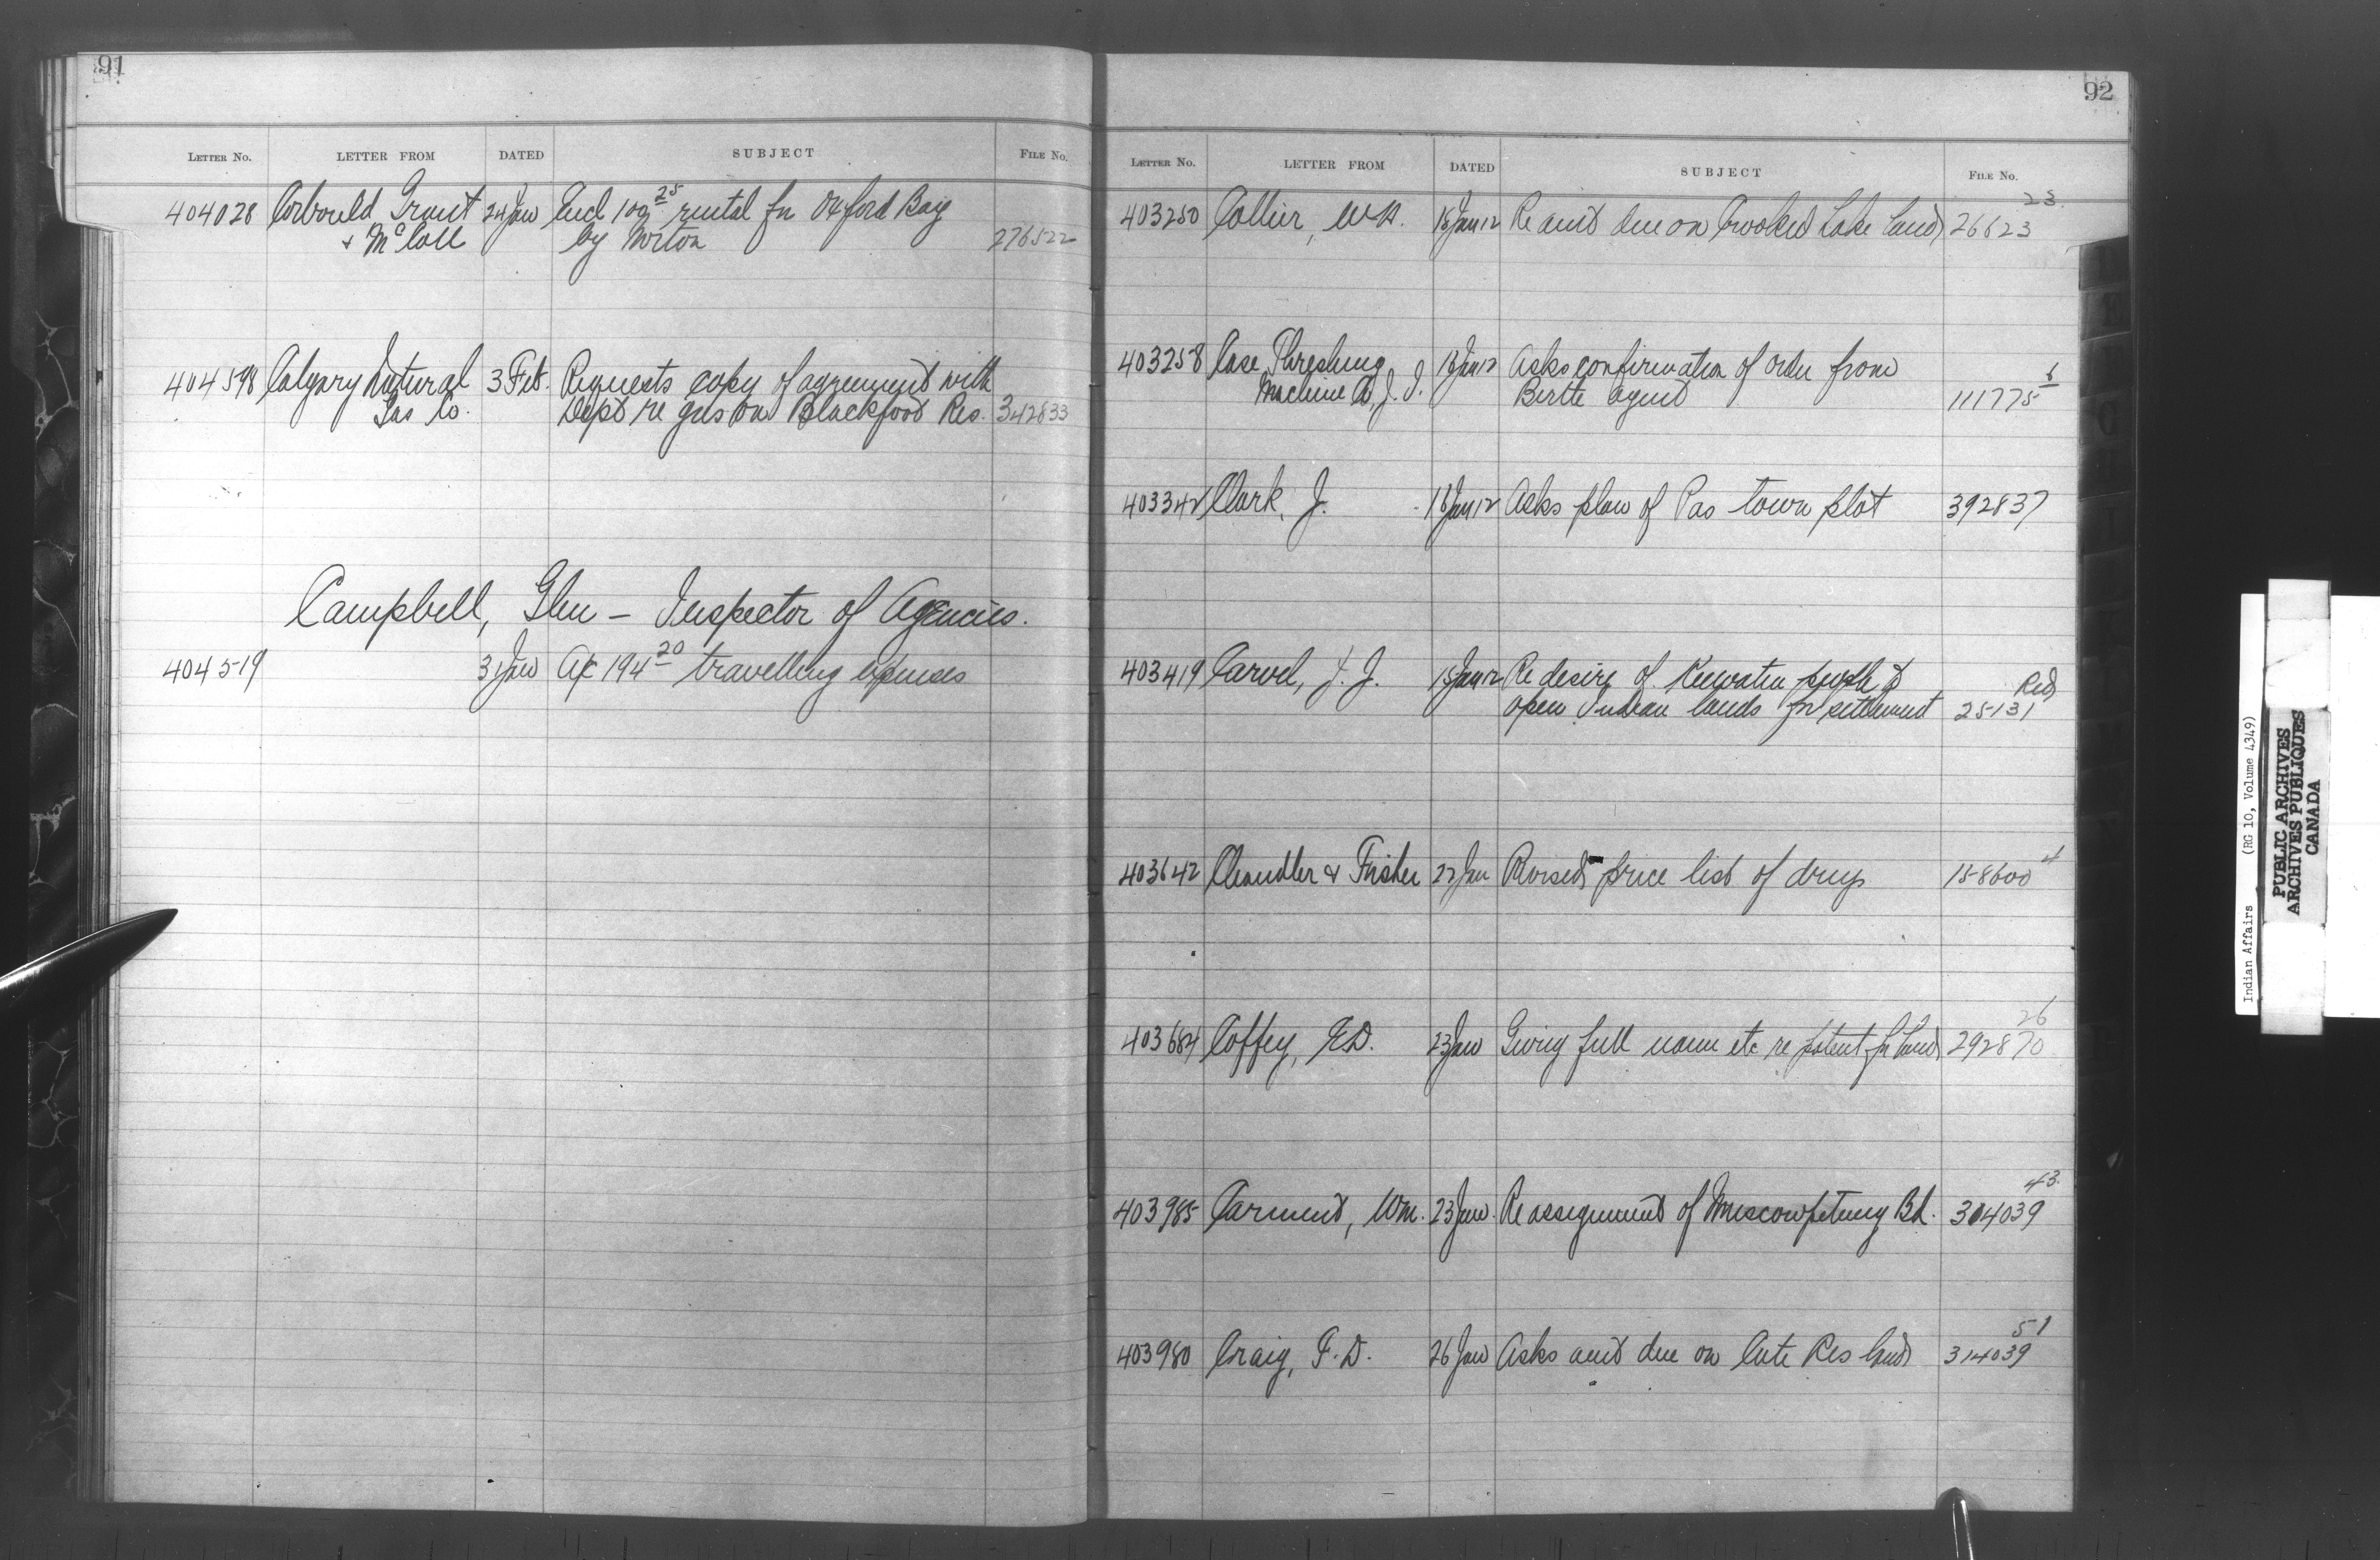 91
LETTER NO. LETTER FROM DATED SUBJECT FILE NO.
404028 Corbould Grant 24 Jan Encl 109 25 rental for Oxford Bay
& McColl by Morton 276522
404598 Calgary Natural 3 Feb. Requests copy of agreement with
Gas Co. Dept re gas on Blackfoot Res. 342833
Campbell, Glen – Inspector of Agencies.
404519 31 Jan A/c 194 20 travelling expenses
92
LETTER NO. LETTER FROM DATED SUBJECT FILE NO.
23
403250 Collier, W.A. 18 Jan 12 Re amt due on Crooked Lake land 26623
403258 Case Threshing 18 Jan 12 Asks confirmation of order from 6
Machine Co, J. I. Birtle agent 111775
403342 Clark, J. 18 Jan 12 Asks plan of Pas town plot 392837
403419 Carvel, J. J. 18 Jan 12 Re desire of Keewatin people to Red
open Indian lands for settlement 25131
403642 Chandler & Fisher 22 Jan Revised price list of drugs 158600 4
26
403684 Coffey, E.D. 23 Jan Giving full name etc re patent for land 292870
43
403985 Carment, Wm. 23 Jan. Re assignment of Muscowpetung Bd. 304039
51
403980 Craig, F. D. 26 Jan Asks amt due on Cote Res land 314039
Indian Affairs (RG 10, Volume 4349)
PUBLIC ARCHIVES
ARCHIVES PUBLIQUES
CANADA